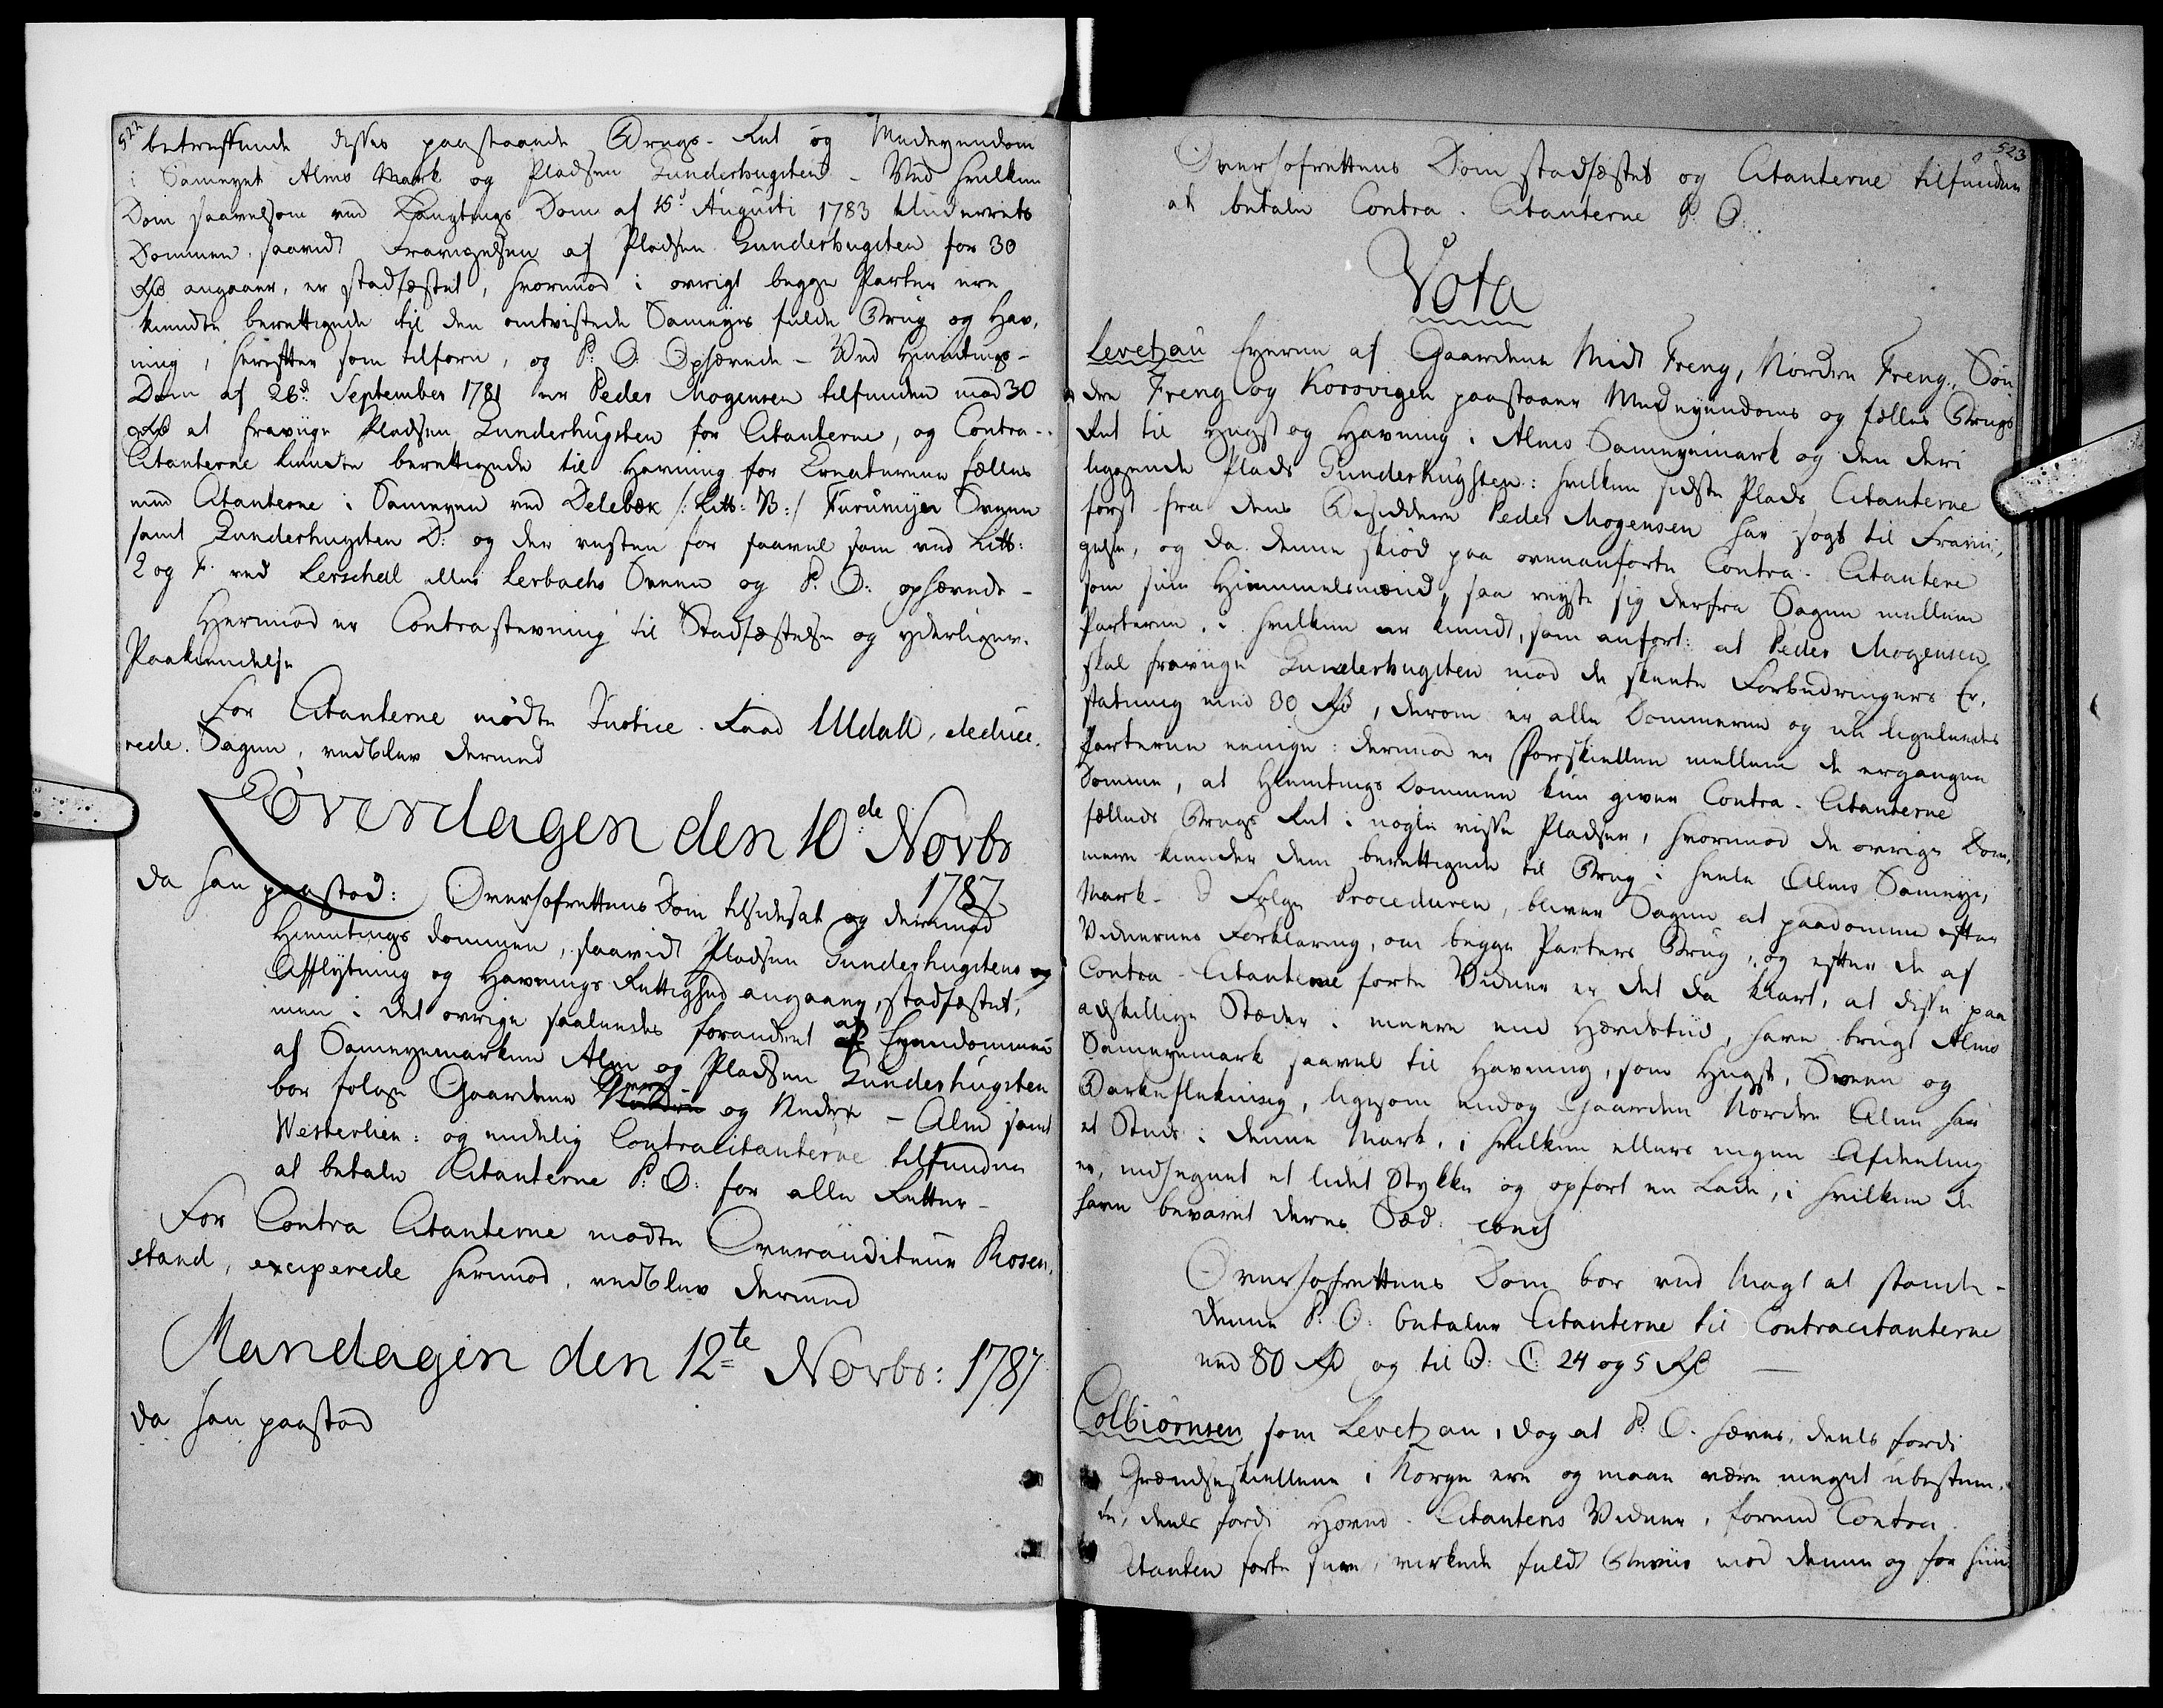 522
betreffende disses paastaaende Brugs-Ret og Medeyendom
i Sameyet Alms Mark og Pladsen Gunderhugsten - Ved hvilken
Dom saavelsom ved Laugtings Dom af 15d Augusti 1783 Underrets
Dommen saavidt Fravigelsen af Pladsen Gunderhugsten for 30
Rd angaaer, er stadfæstet, hvorimod i øvrigt begge Parter ere
kiendte berettigede til den omtvistede Sameyes fulde Brug og Hav,
ning, herefter som tilforn, og P: O: Ophævede - Ved Hiemtings-
Dom af 26d September 1781 er Peder Mogensen tilfunden mod 30
Rd at fraviige Pladsen Gunderhugsten for Citanterne, og Contra-
Citanterne kiendte berettigede til Havning for Creaturene fælles
med Citanterne i Sameyen ved Delebæk /: Litt: B:/ Furumyer
samt Gunderhugsten D: og der vesten for saavel som ved Litt:
E og F. ved Lerschell eller Lerbachs og P: O: ophævede -
Hermod er Contrastevning til Stadfæstelse og yderligere
Paakiendelse
For Citanterne mødte Justice-Raad Uldall, deduce-
rede Sagen, vedblev dermed
Løverdagen den 10de Novbr
1787
da han paastod: Overhofrettens Dom tilsidesat og derimod
Hiemtings dommen, saavidt Pladsen Gunderhugstens
Afflytning og Havnings Rettighed angaaer, stadfæstet,
men i det øvrige saaledes forandret at Eyendommen
af Sameyemarken Alm og Pladsen Gunderhugsten
bør følge Gaardene Øvre og Nedre - Alm samt
Westerlien: og endelig Contracitanterne tilfunden
at betale Citanterne P: O: for alle Retter -
For Contra Citanterne mødte Overauditeur Rosen,
stand, exciperede hermod, vedblev dermed
Mandagen den 12te Novbr: 1787
da han paastod
523
Overhofrettens Dom stadfæstet og Citanterne tilfunden
at betale Contra-Citanterne P: O:
Vota
Levetzau Eyerne af Gaardene Midt Freng, Nordre Freng, Søn
dre Freng og Korsvigen paastaaer Medeyendoms og fælles Brugs
Ret til Hugst og Havning i Alms Sameyemark og den deri
liggende Plads Gunderhugsten: hvilken sidste Plads Citanterne
først fra dens Besiddere Peder Mogensen har søgt til Fravi,
gelse, og da denne skiød paa ovenanførte Contra-Citantere
som sine Hiemmelsmænd, saa reyste sig derfra Sagen mellem
Parterne, i hvilken er kiendt, som anført: at Peder Mogensen
skal fraviige Gunderhugsten mod de skeete Forbedringers Er,
statning med 30 Rd, derom er alle Dommerne og nu ligeledes
Parterne eenige: derimod er Forskiellen mellem de ergangne
Domme, at Hiemtings Dommen kun giver Contra-Citanterne
fælleds Brugs Ret i nogle visse Pladser, hvorimod de øvrige Dom,
mere kiender dem berettigede til Brug i heele Alms Sameye,
Mark - I Følge Proceduren, bliver Sagen at paadømme efter
Vidnernes Forklaring, om begge Parters Brug, og efter de af
Contra-Citanterne førte Vidner er det da klart, at disse paa
adskillige Stæder i meere end Hævdstiid, have brugt Alms
Sameyemark saavel til Havning, som Hugst, og
Barkeflekning, ligesom endog Gaarden Nordre Alm har
et Sted i denne Mark, i hvilken ellers ingen Afdeeling
er, indhegnet et lidet Stykke og opført en Lade, i hvilken de
have bevaret deres Sæd: concl
Overhofrettens Dom bør ved Magt at stande -
denne P: O: betaler Citanterne til Contracitanterne
med 80 Rd og til D: C: 24 og 5 Rd
Colbiørnsen som Levetzau, dog at P: O: hæves, deels fordi
Grændseskiellene i Norge ere og maae være meget ubestem,
te, deels fordi Hoved-Citantens Vidner, førend Contra
Citanten førte sine, virkede fuldt Beviis mod denne og for hiin